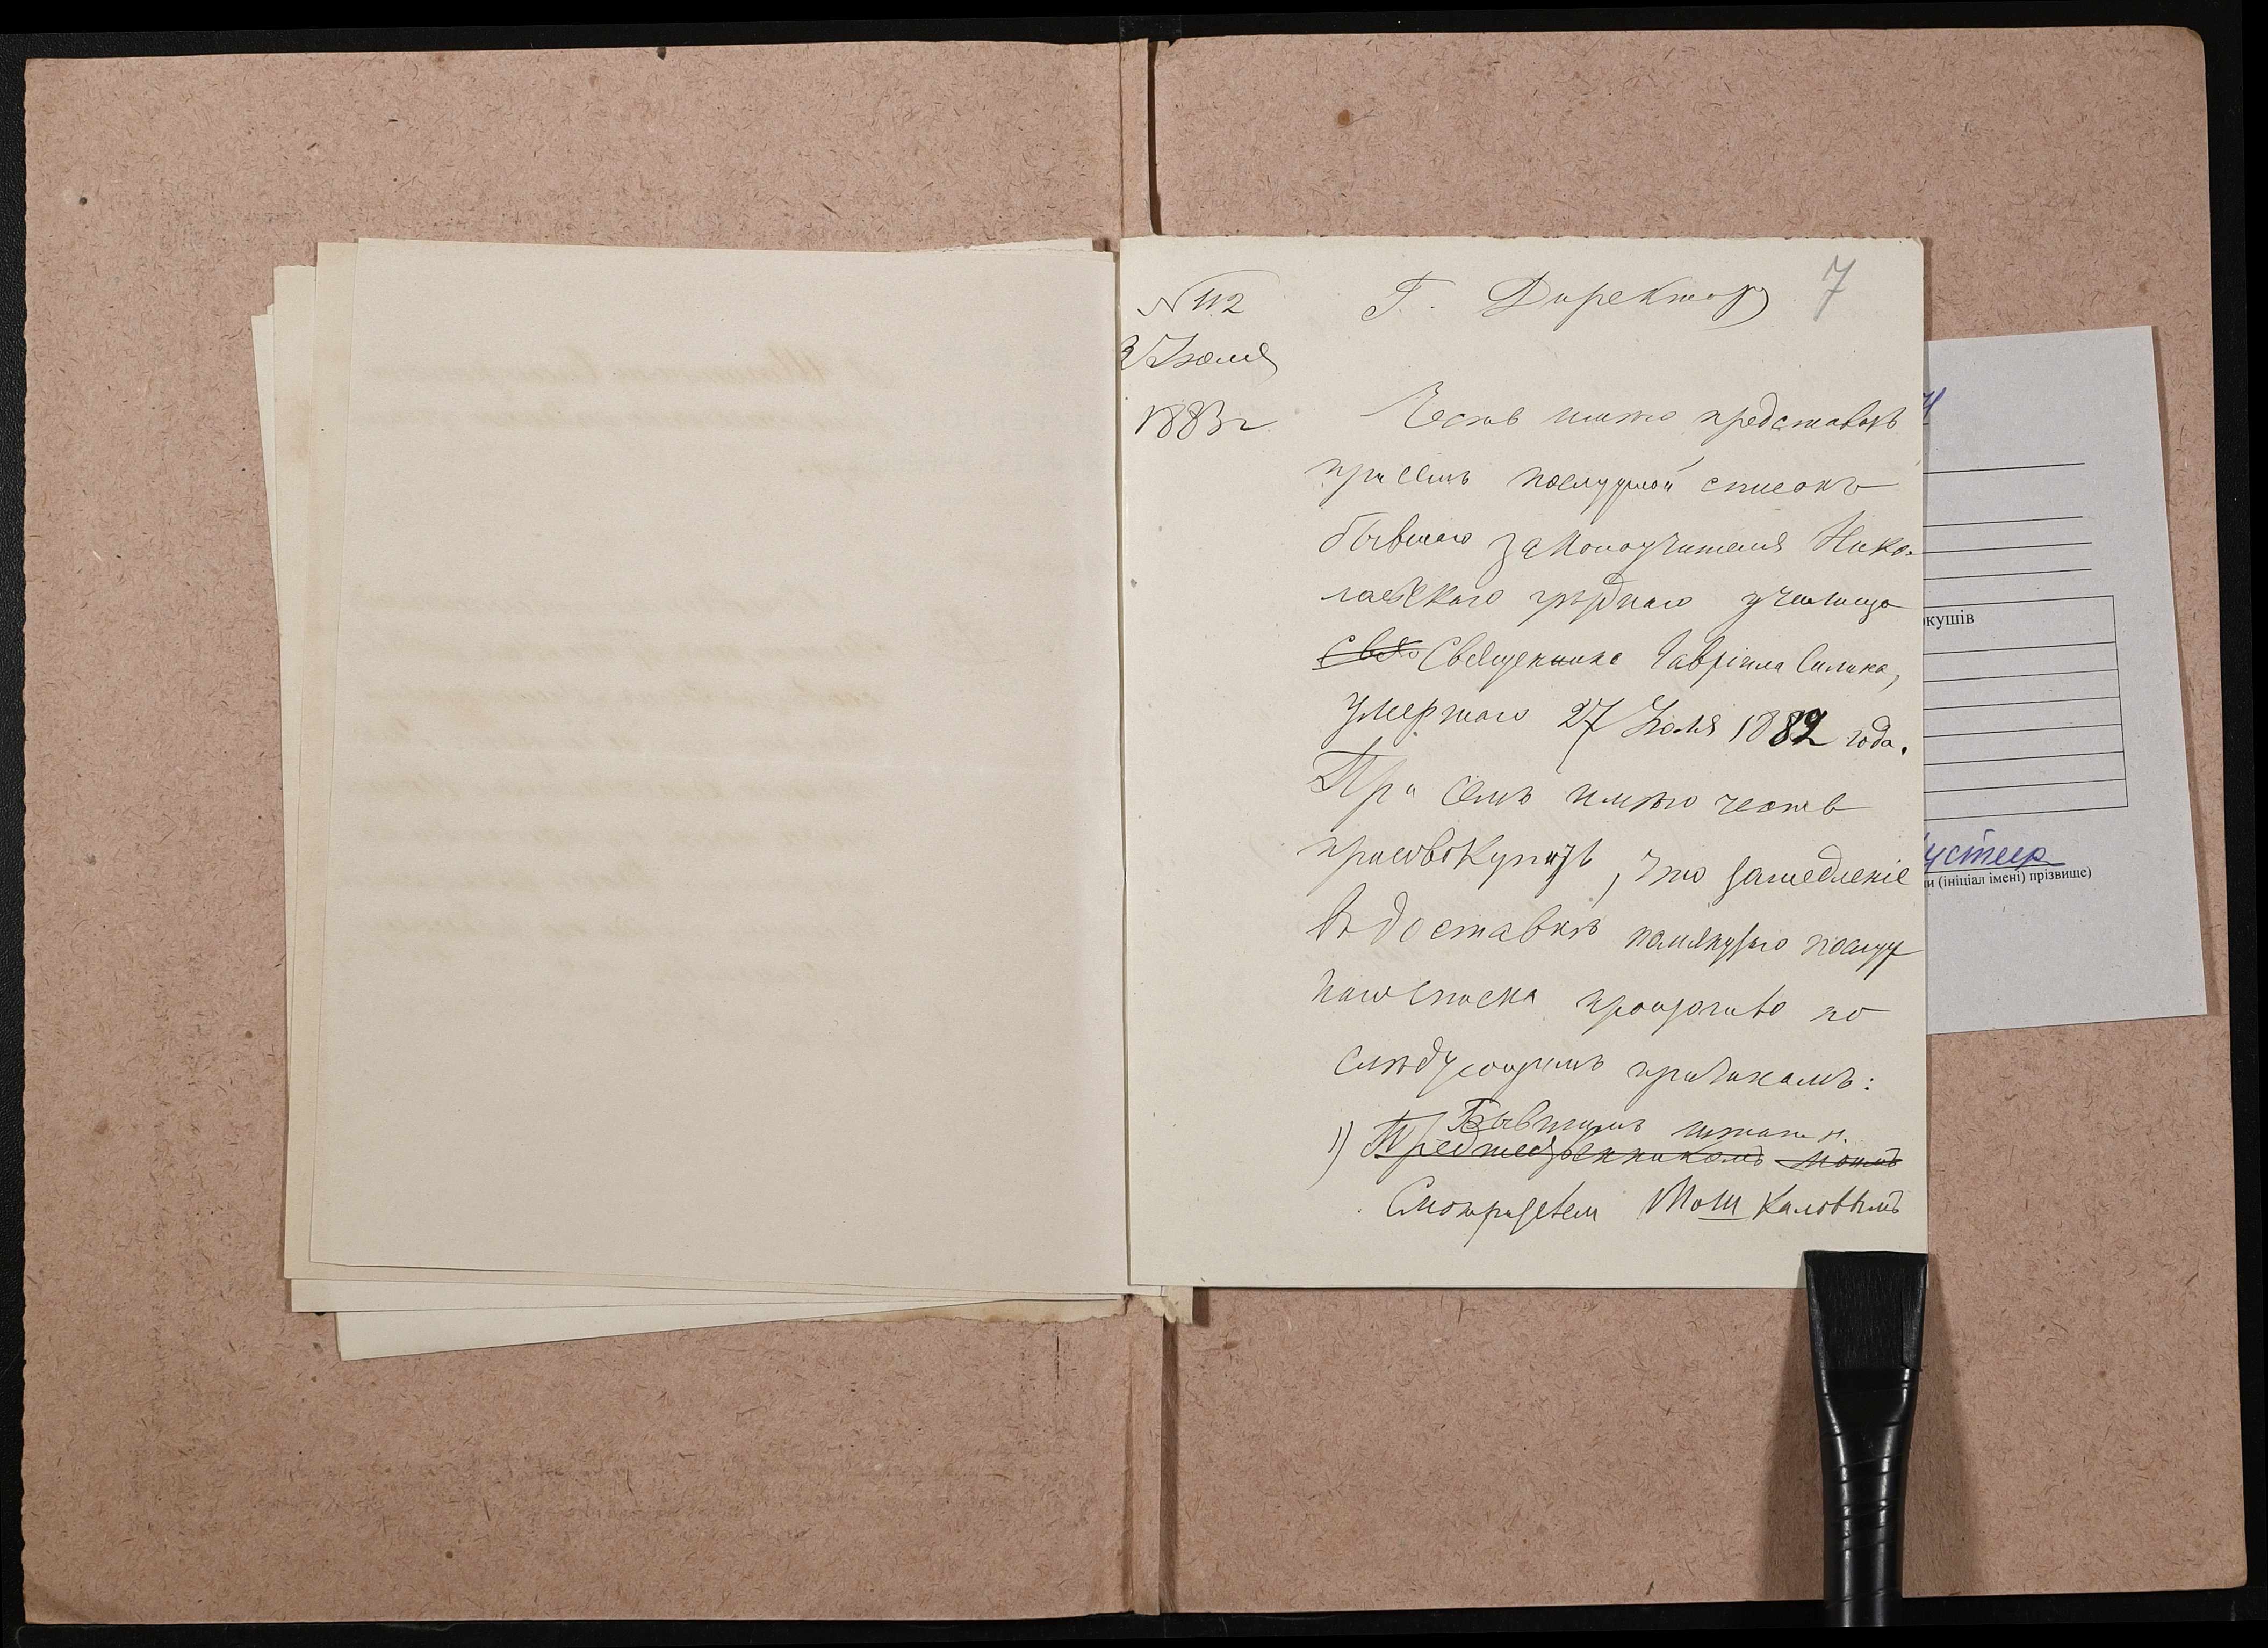 7
N 112
3 Іюля
1883 г
Г. Директору
Честь имѣю представить
при семъ послужной списокъ
бывшаго законоучителя Нико-
лаевскаго уѣзднаго училища
Священника Гавріила Силика,
умершаго 27 Іюля 1882 года.
При семъ имѣю честь
присовокупить, что замедленіе
въ доставкѣ помянутаго послуж
наго списка произошло по
слѣдующимъ причинамъ:
Бывшимъ штатн.
1) Предшественникомъ моимъ
Смотрителем Мошкаловымъ
кушів
(ініціал імені) прізвище)